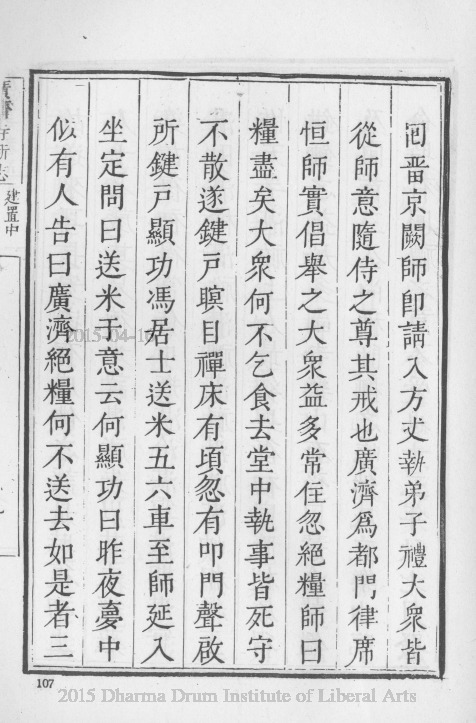 回晋京闕師卽請入方丈執弟子禮大衆皆
從師意隨侍之尊其戒也廣濟爲都門律席
恒師實倡舉之大衆益多常住忽絕糧師曰
糧盡矣大衆何不乞食去堂中執事皆死守
不散遂鍵戸瞑目禪床有頃忽有叩門聲啟
所鍵戸顯功馮居士送米五六車至師延入
坐定問曰送米于意云何顯功曰昨夜夢中
似有人告曰廣濟絕糧何不送去如是者三
建置中
107
2015-04-16
2015 Dharma Drum Institute of Liberal Arts